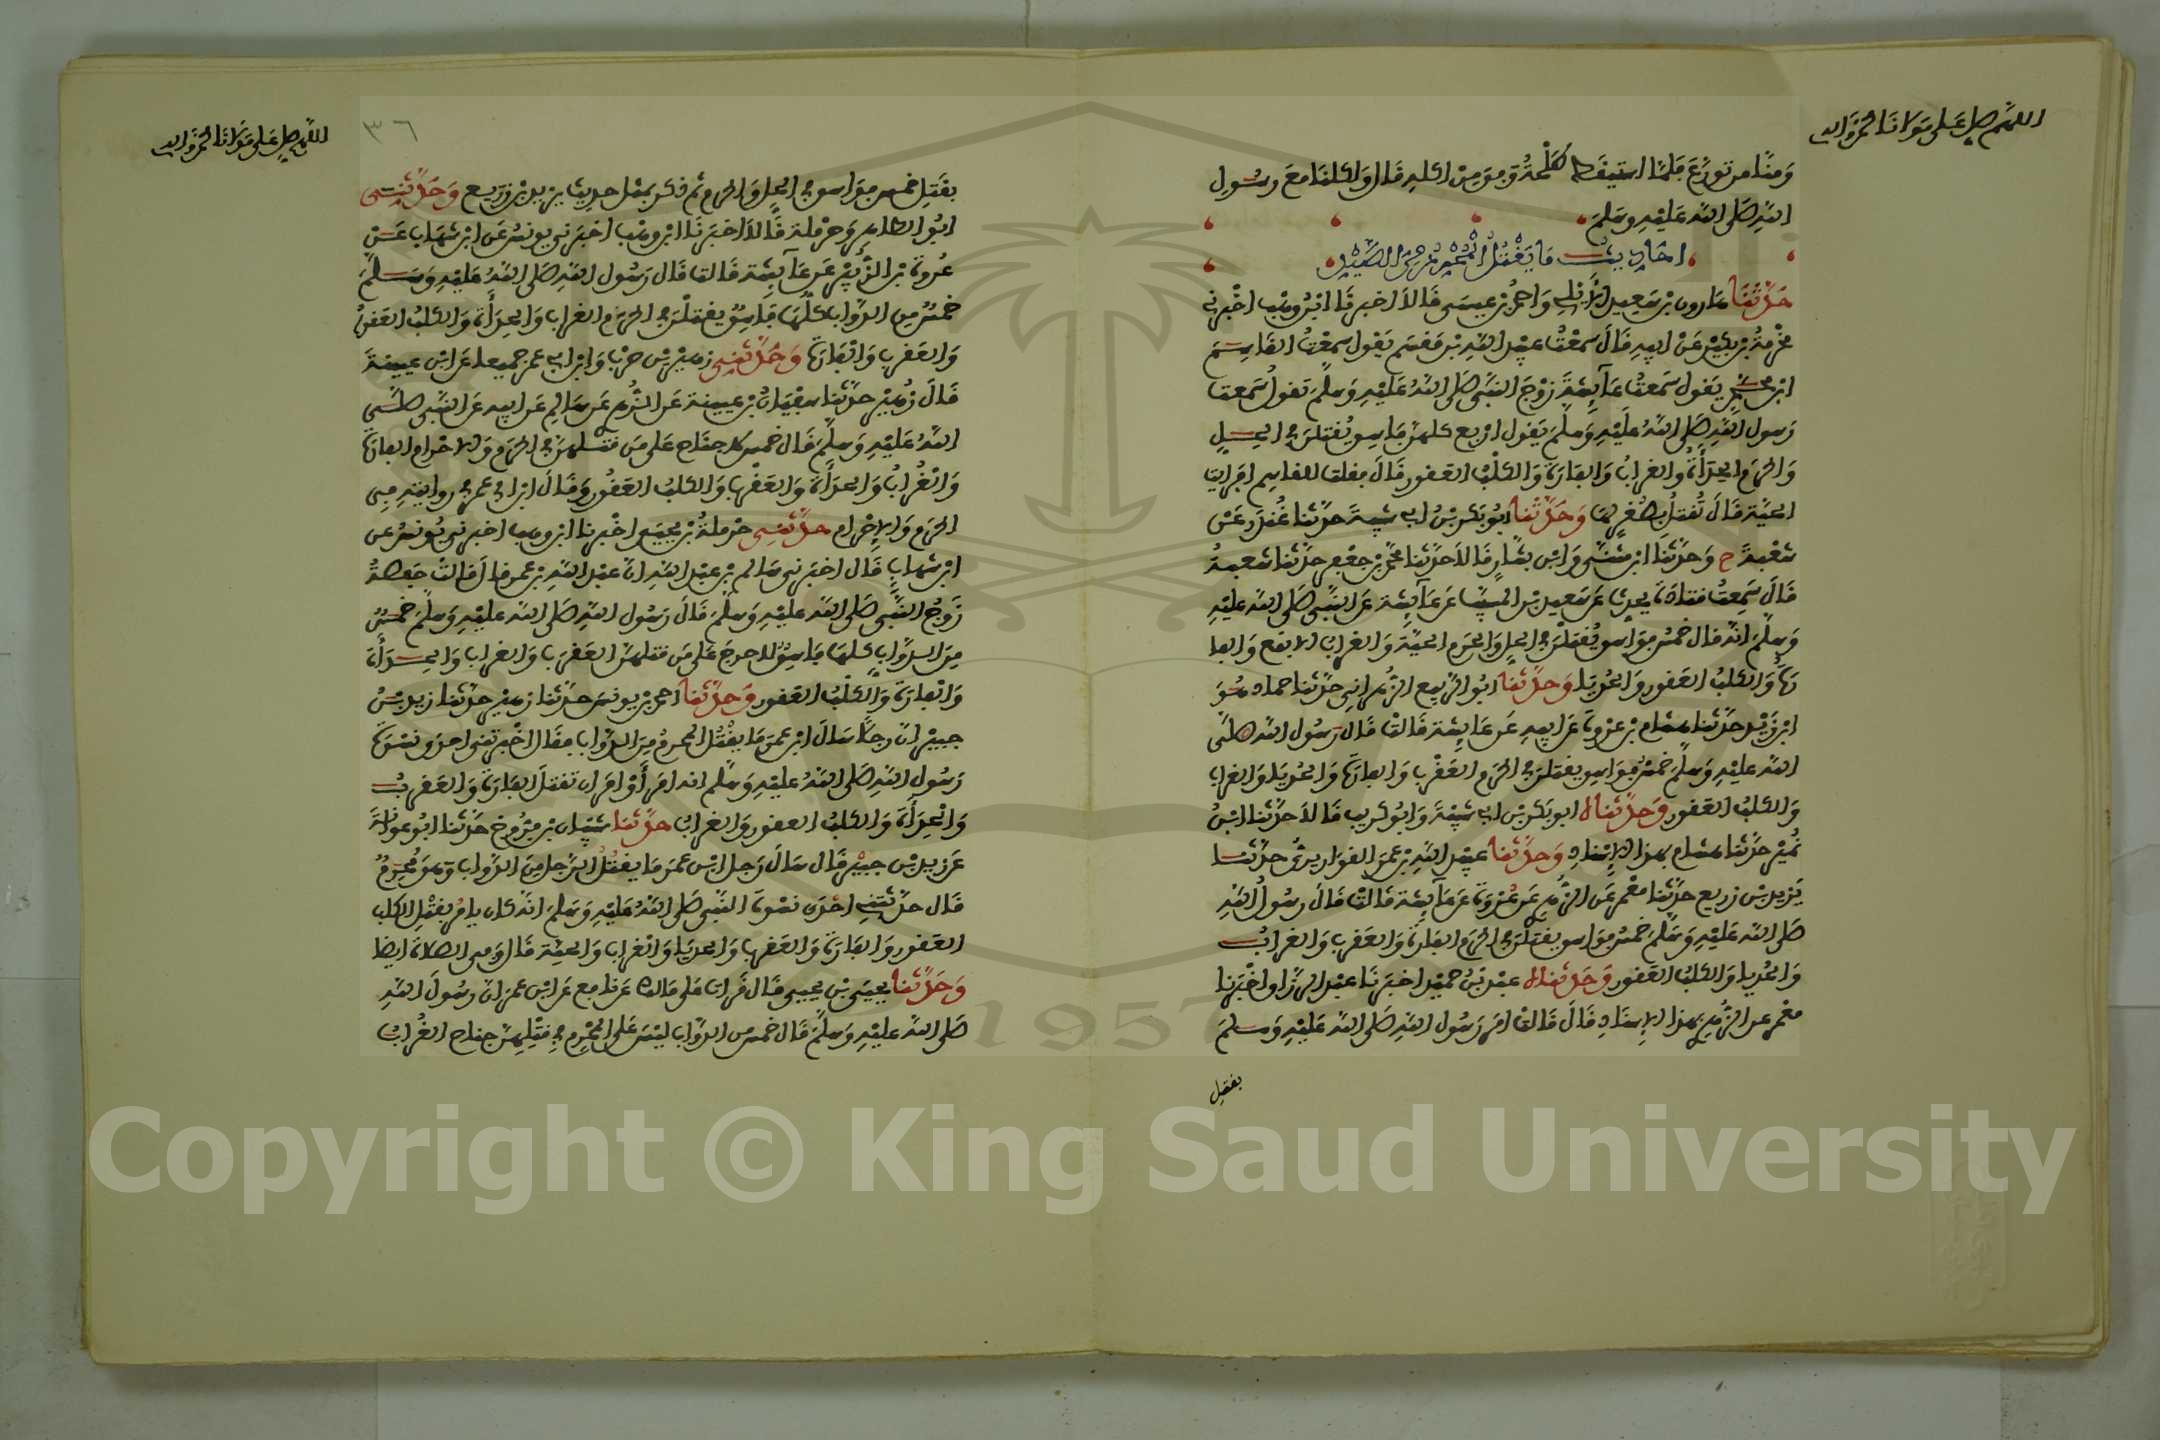 اللهم صل على مولانا محمد وآله
ومنا من تورع فلما استيقظ طلحة وفق من اكله قال واكلنا مع رسول
الله صلى الله عليه وسلم
احاديث ما يقتل المحرم من الصيد
حدثنا هارون بن سعيد الايلي واحمد بن عيسى قالا اخبرنا ابن وهب اخبرني
مخرمة بن بكير عن ابيه قال سمعت عبيد الله بن مقسم يقول سمعت القاسم
ابن محمد يقول سمعت عآيشة زوج النبي صلى الله عليه وسلم تقول سمعت
رسول الله صلى الله عليه وسلم يقول اربع كلهن فاسق يقتلن في الحل
والحرم الحدأة والغراب والفارة والكلب العقور قال فقلت للقاسم افرايت
الحية قال تقتل بصغر لها وحدثنا ابو بكر بن ابي شيبة حدثنا غندر عن
شعبة ح وحدثنا ابن مثنى وابن بشار قالا حدثنا محمد بن جعفر حدثنا شعبة
قال سمعت قتادة يحدث عن سعيد بن المسيب عن عآيشة عن النبي صلى الله عليه
وسلم انه قال خمس فواسق يقتلن في الحل والحرم الحية والغراب الابقع والفا
رة والكلب العقور والحديا وحدثنا ابو الربيع الزهراني حدثنا حماد هو
ابن زيد حدثنا هشام بن عروة عن ابيه عن عايشة قالت قال رسول الله صلى
الله عليه وسلم خمس فواسق يقتلن في الحرم العقرب والفارة والحديا والغراب
والكلب العقور وحدثناه ابو بكر بن ابي شيبة وابو كريب قالا حدثنا ابن
نمير حدثنا هشام بهذا الاسناد وحدثنا عبيد الله بن عمر القواريري حدثنا
يزيد بن زريع حدثنا معمر عن الزهري عن عروة عن عآيشة قالت قال رسول الله
صلى الله عليه وسلم خمس فواسق يقتلن في الحرم الفارة والعقرب والغراب
والحديا والكلب العقور وحدثناه عبد بن حميد اخبرنا عبد الرزاق اخبرنا
معمر عن الزهري بهذا الاسناد قال قالت امر رسول الله صلى الله عليه وسلم
بقتل
اللهم صل على مولانا محمد وآله
٣٦
بقتل خمس فواسق في الحل والحرم ثم ذكر بمثل حديث يزيد بن زريع وحدثني
ابو الطاهر وحرملة قالا اخبرنا ابن وهب اخبرني يونس عن ابن شهاب عن
عروة بن الزبير عن عآيشة قالت قال رسول الله صلى الله عليه وسلم
خمس من الدواب كلها فاسق يقتلن في الحرم الغراب والحدأة والكلب العقور
والعقرب والفارة وحدثني زهير بن حرب وابن ابي عمر جميعا عن ابن عيينة
قال زهير حدثنا سفيان بن عيينة عن الزهري عن سالم عن ابيه عن النبي صلى
الله عليه وسلم قال خمس لا جناح على من قتلهن في الحرم والاحرام الفارة
والغراب والحدأة والعقرب والكلب العقور وقال ابن ابي عمر في روايته في
الحرم والاحرام حدثني حرملة بن يحيى اخبرنا ابن وهب اخبرني يونس عن
ابن شهاب قال اخبرني سالم بن عبد الله ان عبد الله بن عمر قال قالت حفصة
زوج النبي صلى الله عليه وسلم قال رسول الله صلى الله عليه وسلم خمس
من الدواب كلها فاسق لا حرج على من قتلهن العقرب والغراب والحدأة
والفارة والكلب العقور وحدثنا احمد بن يونس حدثنا زهير حدثنا زيد بن
جبير ان رجلا سال ابن عمر ما يقتل المحرم من الدواب فقال اخبرتني احدى نسوة
رسول الله صلى الله عليه وسلم انه امر أو امر ان تقتل الفارة والعقرب
والحدأة والكلب العقور والغراب حدثنا شيبان بن فروخ حدثنا ابو عوانة
عن زيد بن جبير قال سال رجل ابن عمر ما يقتل الرجل من الدواب وهو محرم
قال حدثتني احدى نسوة النبي صلى الله عليه وسلم انه كان يامر بقتل الكلب
العقور والفارة والعقرب والحديا والغراب والحية قال وفي الصلاة ايضا
وحدثنا يحيى بن يحيى قال قرات على مالك عن نافع عن ابن عمر ان رسول الله
صلى الله عليه وسلم قال خمس من الدواب ليس على المحرم في قتلهن جناح الغراب
Copyright © King Saud University
1957